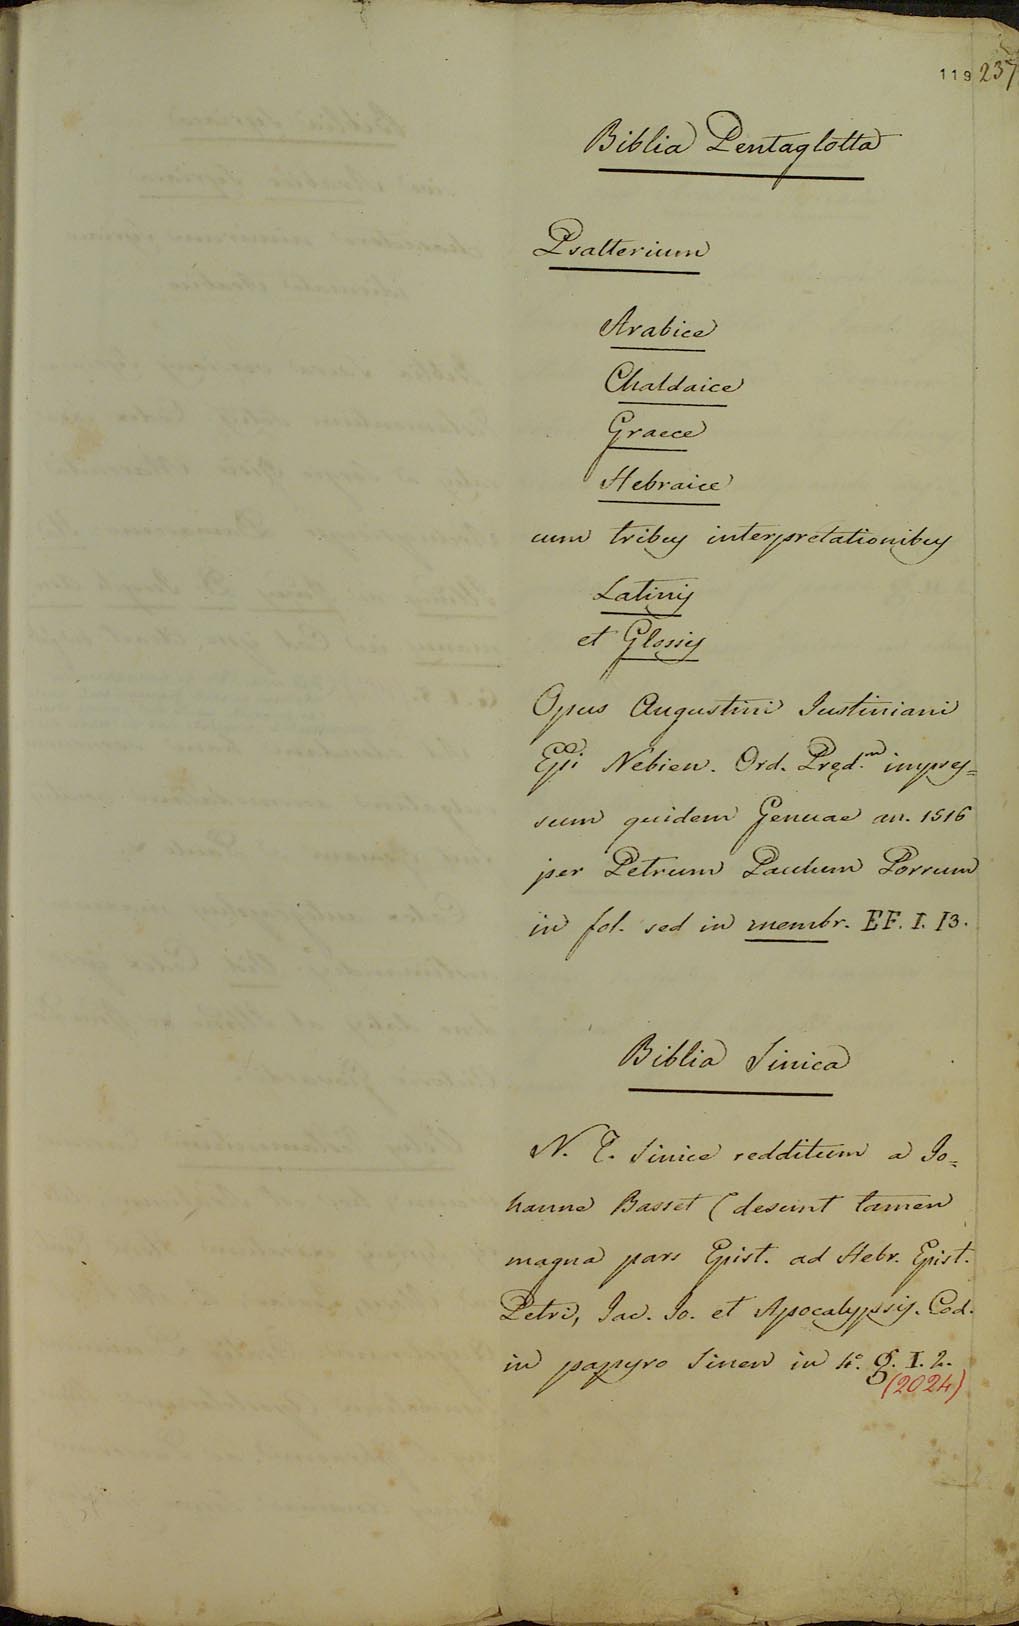 119 237
Biblia Pentaglotta
Psalterium
Arabice
Chaldaice
Graece
Hebraice
cum tribus interpretationibus
Latinis
et Glossis
Opus Augustini Iustiniani
Epi Nebien. Ord. Pręd.m impres=
sum quidem Genuae an. 1516
per Petrum Paulum Porrum
in fol. sed in membr. EF. I. 13.
Biblia Sinica
N. T. Sinice redditum a Jo=
hanne Basset (desunt tamen
magna pars Epist. ad Hebr. Epist.
Petri, Jac. Jo. et Apocalypsis. Cod.
in papyro Sinen in 4.o g. I. 2.
(2024)